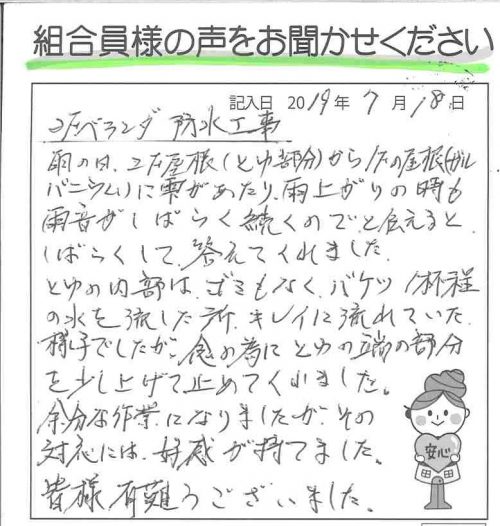 組合員様の声をお聞かせください
記入日 2019年 7月 18日
2Fベランダ 防水工事
雨の日、2F屋根(とゆ部分)から1Fの屋根(ガル
バニウム)に雫があたり、雨上がりの時も
雨音がしばらく続くのでと伝えると
しばらくして、答えてくれました。
とゆの内部は、ゴミもなく、バケツ1杯程
の水を流した所、キレイに流れていた
様子でしたが、念の為にとゆの端の部分
を少し上げて止めてくれました。
余分な作業になりましたが、その
対応には、好感が持てました。
皆様 有難うございました。
安心